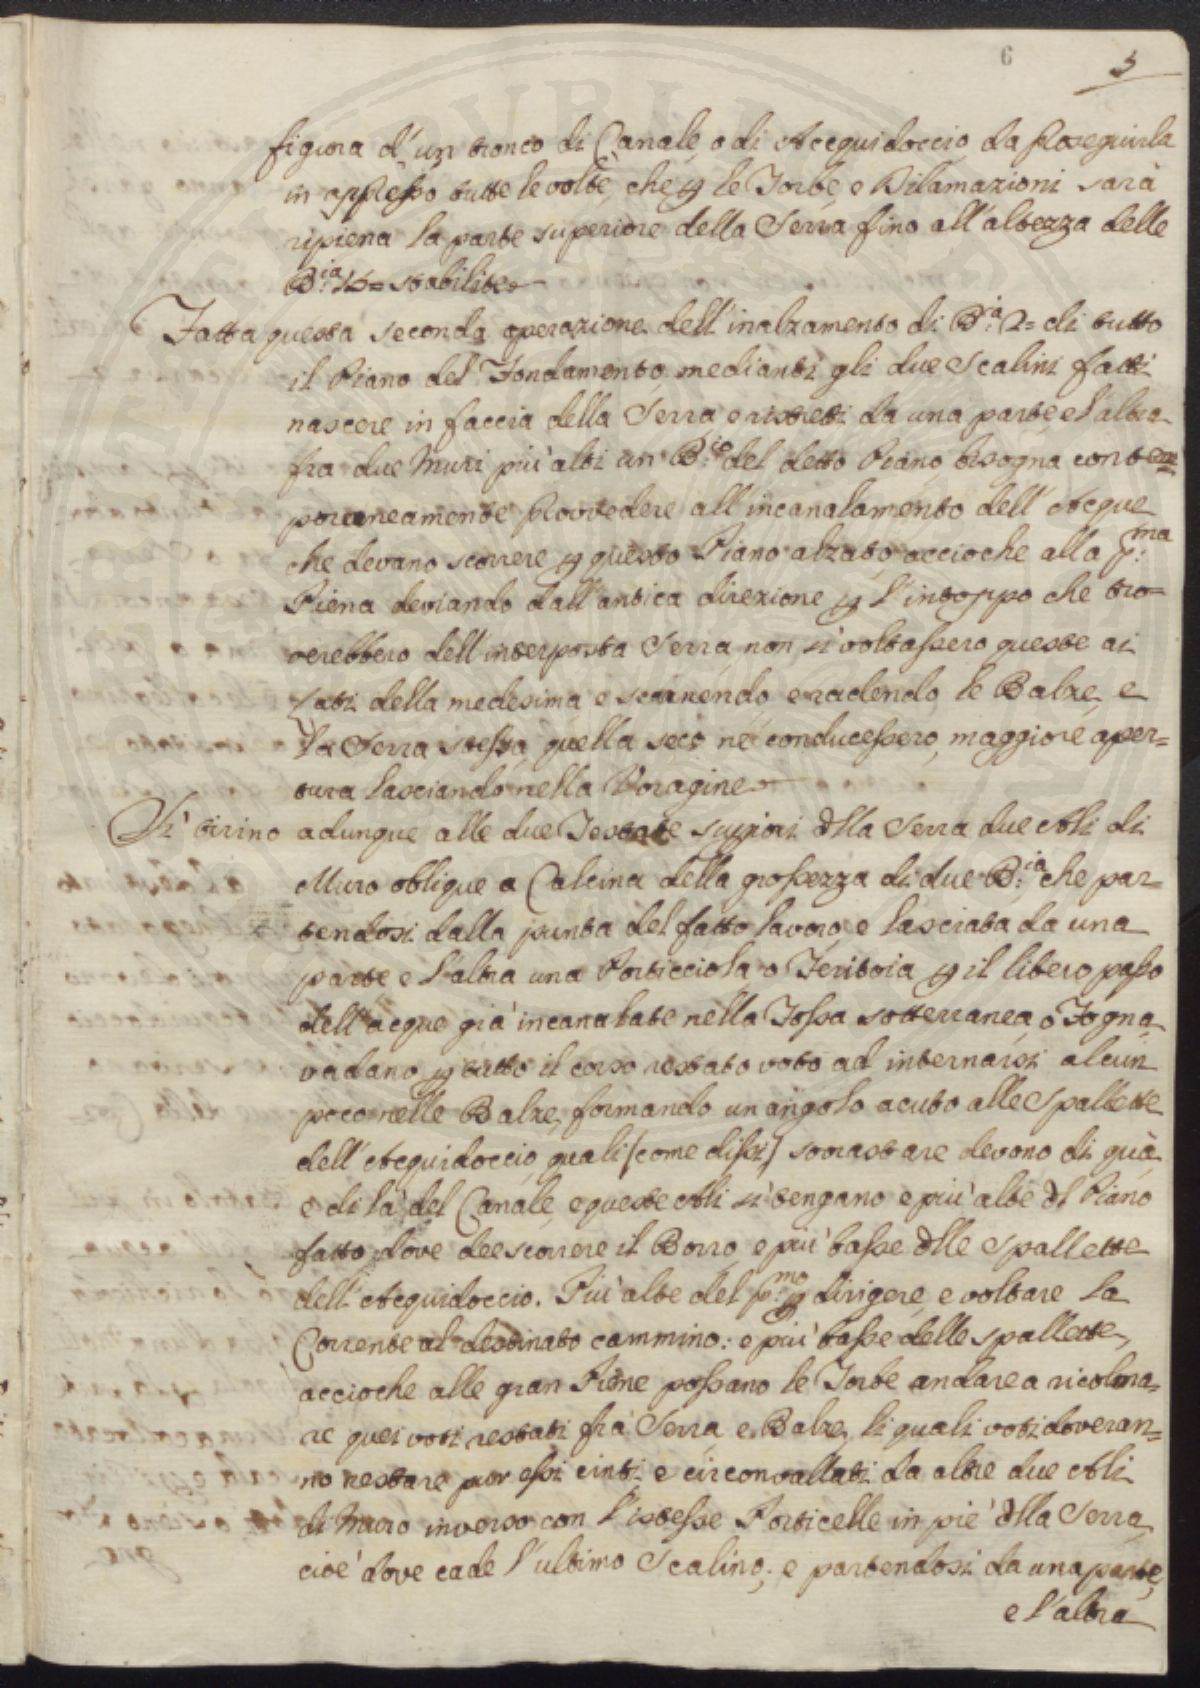 6
5
figura d'un tronco di Canale, o di Acquidoccio da proseguirla
in appresso tutte le volte, che p le Torbe, e Dilamazioni sarà
ripiena la parte superiore della Serra fino all'altezza delle
B.ia 12= stabilite=
Fatta questa seconda operazione dell'inalzamento di B.ia 2= di tutto
il Piano del Fondamento medianti gli due Scalini fatti
nascere in faccia della Serra e ristretti da una parte, e l'altra
fra due Muri più alti un B.io del detto Piano bisogna contem=
poraneamente provvedere all'incanalamento dell'Acque
che devano scorrere p questo Piano alzato, accioche alla p.ma
Piena deviando dall'antica direzione p l'intoppo che tro=
verebbero dell'interposta Serra, non si voltassero queste ai
Lati della medesima, e scarnendo, e radendo le Balze, e
la Serra stessa, quella seco nè conducessero, maggiore aper=
tura lasciando nella Voragine=
Si tirino adunque alle due Testate supiori dlla Serra due Ali di
Muro oblique a Calcina della grossezza di due B.ia che par=
tendosi dalla punta del fatto lavoro, e lasciata da una
parte, e l'altra una Porticciola, o Feritoia p il libero passo
dell'acque già incanalate nella Fossa sotterranea, o Fogna,
vadano p tutto il corso restato voto ad internarsi alcun
poco nelle Balze, formando un angolo acuto alle Spallette
dell'Acquidoccio, quali (come dissi) sovrastare devono di quà
e di là del Canale, e queste Ali si tengano e più alte dl Piano
fatto dove dee scorrere il Borro, e più basse dlle Spallette
dell'Acquidoccio. Più alte del p.mo p dirigere, e voltare la
Corrente al destinato cammino: e più basse delle spallette,
accioche alle gran Piene possano le Torbe andare a ricolma=
re quei voti restati frà Serra e Balze, li quali voti doveran=
no restare pur essi cinti, e circonvallati da altre due Ali
di Muro inverso con l'istesse Porticelle in piè dlla Serra,
cioè dove cade l'ultimo Scalino; e partendosi da una parte,
e l'altra